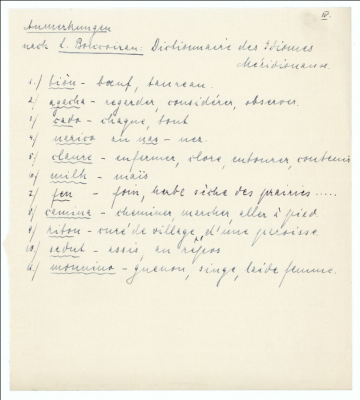 IV.
Anmerkungen
nach L. Boucoiran: Dictionnaire des Idiomes
Méridionaux
1.) biòu - bœuf, taureau.
2) agacha - regarder, considérer, observer.
3) cado - chaque, tout
4) narico au nas - nez.
5) claure - enfermer, clore, entourer, contenir
6) milh - maïs
7) fen - foin, herbe sèche des prairies .....
8) camina - cheminer, marcher, aller à pied
9) ritou - curé de village, d'une paroisse
10) sedut - assis, au repos
11) mounino - guenon, singe, laide femme.